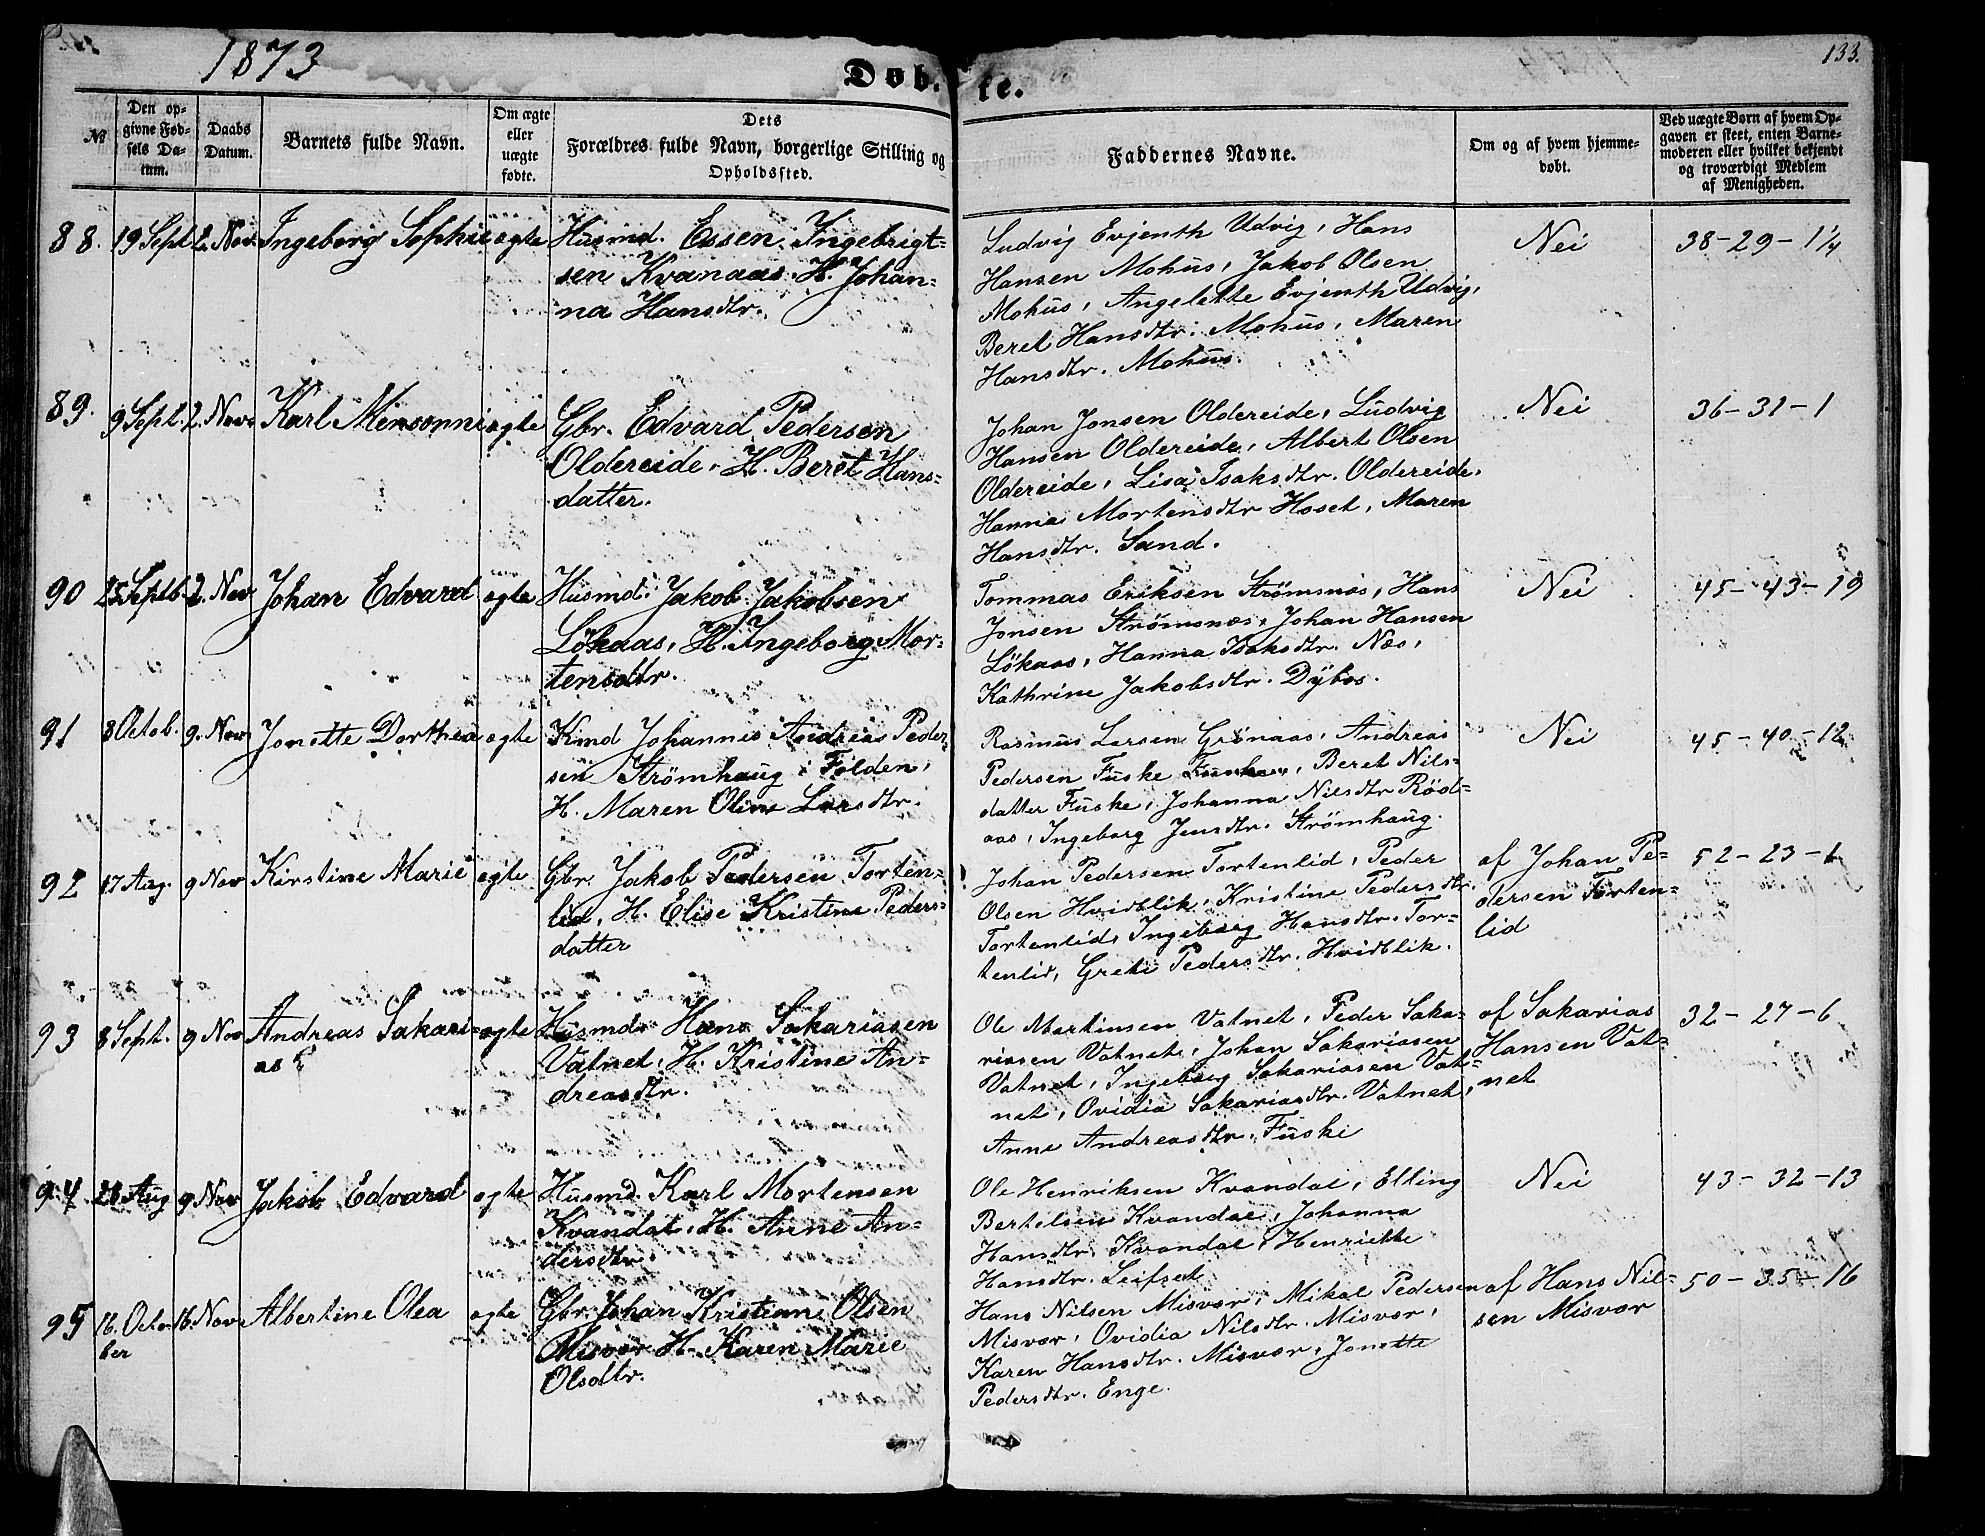 1873
133.
Døbte.
№
Den opgivne Fødsels Datum.
Daabs Datum.
Barnets fulde Navn.
Om ægte eller uægte fødte.
Dets Forældres fulde Navn, borgerlige Stilling og Opholdssted.
Faddernes Navne.
Om og af hvem hjemmedøbt.
Ved uægte Børn af hvem Opgaven er skeet, enten Barnemoderen eller hvilket bekjendt og troværdigt Medlem af Menigheden.
88. 19 Sept 2. Nov. Ingeborg Sophie egte
Husmd. Essen Ingebrigt-
sen Kvanaas. H. Johan-
na Hansdtr.
Ludvig Evjenth Udvig, Hans
Hansen Mohus, Jakob Olsen
Mohus, Angelette Evjenth Udvig,
Beret Hansdtr. Mohus, Maren
Hansdtr. Mohus.
Nei
38-29-1 1/4
89. 9 Sept. 2. Nov. Karl Mensonni egte
Gbr. Edvard Pedersen
Oldereide, H. Beret Hans-
datter.
Johan Jonsen Oldereide, Ludvig
Hansen Oldereide, Albert Olsen
Oldereide, Lisa Isaksdtr. Oldereide,
Hanna Mortensdtr Hoset, Maren
Hansdtr. Sand.
Nei
36-31-1
90 25 Septb. 2. Nov Johan Edvard egte
Husmd. Jakob Jakobsen
Lökaas, H. Ingeborg Mor-
tensdtr.
Tommas Eriksen Strømsnæs, Hans
Jonsen Strømsnæs, Johan Hansen
Lökaas, Hanna Isaksdtr. Næs,
Kathrine Jakobsdtr. Dybos.
Nei
45-43-19
91 8 Octob. 9. Nov Jonette Dorthea egte
Kmd Johannes Andreas Peder-
sen Strømhaug i Folden,
H. Maren Oline Larsdtr.
Rasmus Larsen Grønaas, Andreas
Pedersen Fuske, Beret Nils-
datter Fuske, Johanna Nilsdtr Röd-
aas, Ingeborg Jensdtr. Strømhaug.
Nei
45-40-12
92 17 Aug. 9 Nov Kirstine Marie egte
Gbr. Jakob Pedersen Torten-
lid, H. Elise Kristine Peders-
datter
Johan Pedersen Tortenlid, Peder
Olsen Hvidblik, Kristine Pedersdtr.
Tortenlid, Ingeborg Hansdtr. Tor-
tenlid, Grete Pedersdtr. Hvidblik.
af Johan Pe-
dersen Torten-
lid
52-23-1
93 8 Sept. 9 Nov Andreas Sakari-
as egte
Husmd. Hans Sakariasen
Vatnet, H. Kristine An-
dreasdtr.
Ole Martinsen Vatnet, Peder Saka-
riasen Vatnet, Johan Sakariasen
Vatnet, Ingeborg Sakariasen Vat-
net, Ovidia Sakariasdtr. Vatnet,
Anne Andreasdtr. Fuske
af Sakarias
Hansen Vat-
net
32-27-6
94 28 Aug 9 Nov Jakob Edvard egte
Husmd. Karl Mortensen
Kvandal, H. Anne An-
dersdtr.
Ole Henriksen Kvandal, Elling
Bertelsen Kvandal, Johanna
Hansdtr. Kvandal, Henriette
Hansdtr. Leifset
Nei
43-32-13
95 16. Octo-
ber 16. Nov Albertine Olea egte
Gbr. Johan Kristian Olsen
Misvær H. Karen Marie
Olsdtr.
Hans Nilsen Misvær, Mikal Pedersen
Misvær, Ovidia Nilsdtr. Misvær,
Karen Hansdtr. Misvær, Jonette
Pedersdtr. Enge.
af Hans Nil-
sen Misvær
50-35-16